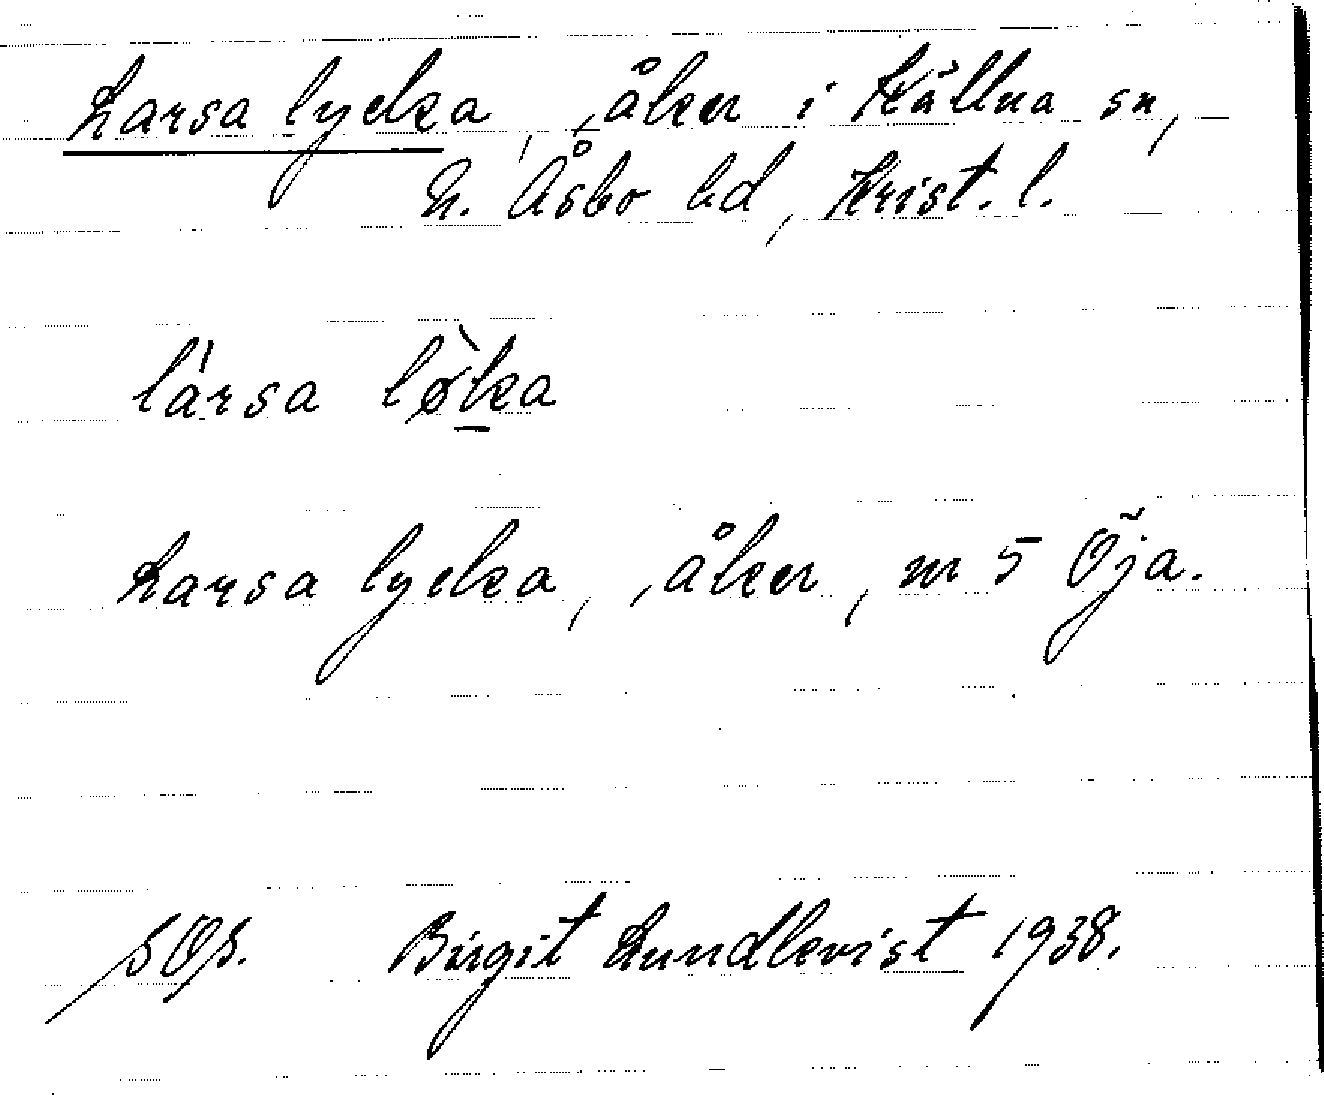 Larsa lycka, åker i Källna sn,
N. Åsbo hd, Krist. l.
lársa lø̀ka
Larsa lycka, åker, nr 5 Öja.
Birgit Lundkvist 1938.